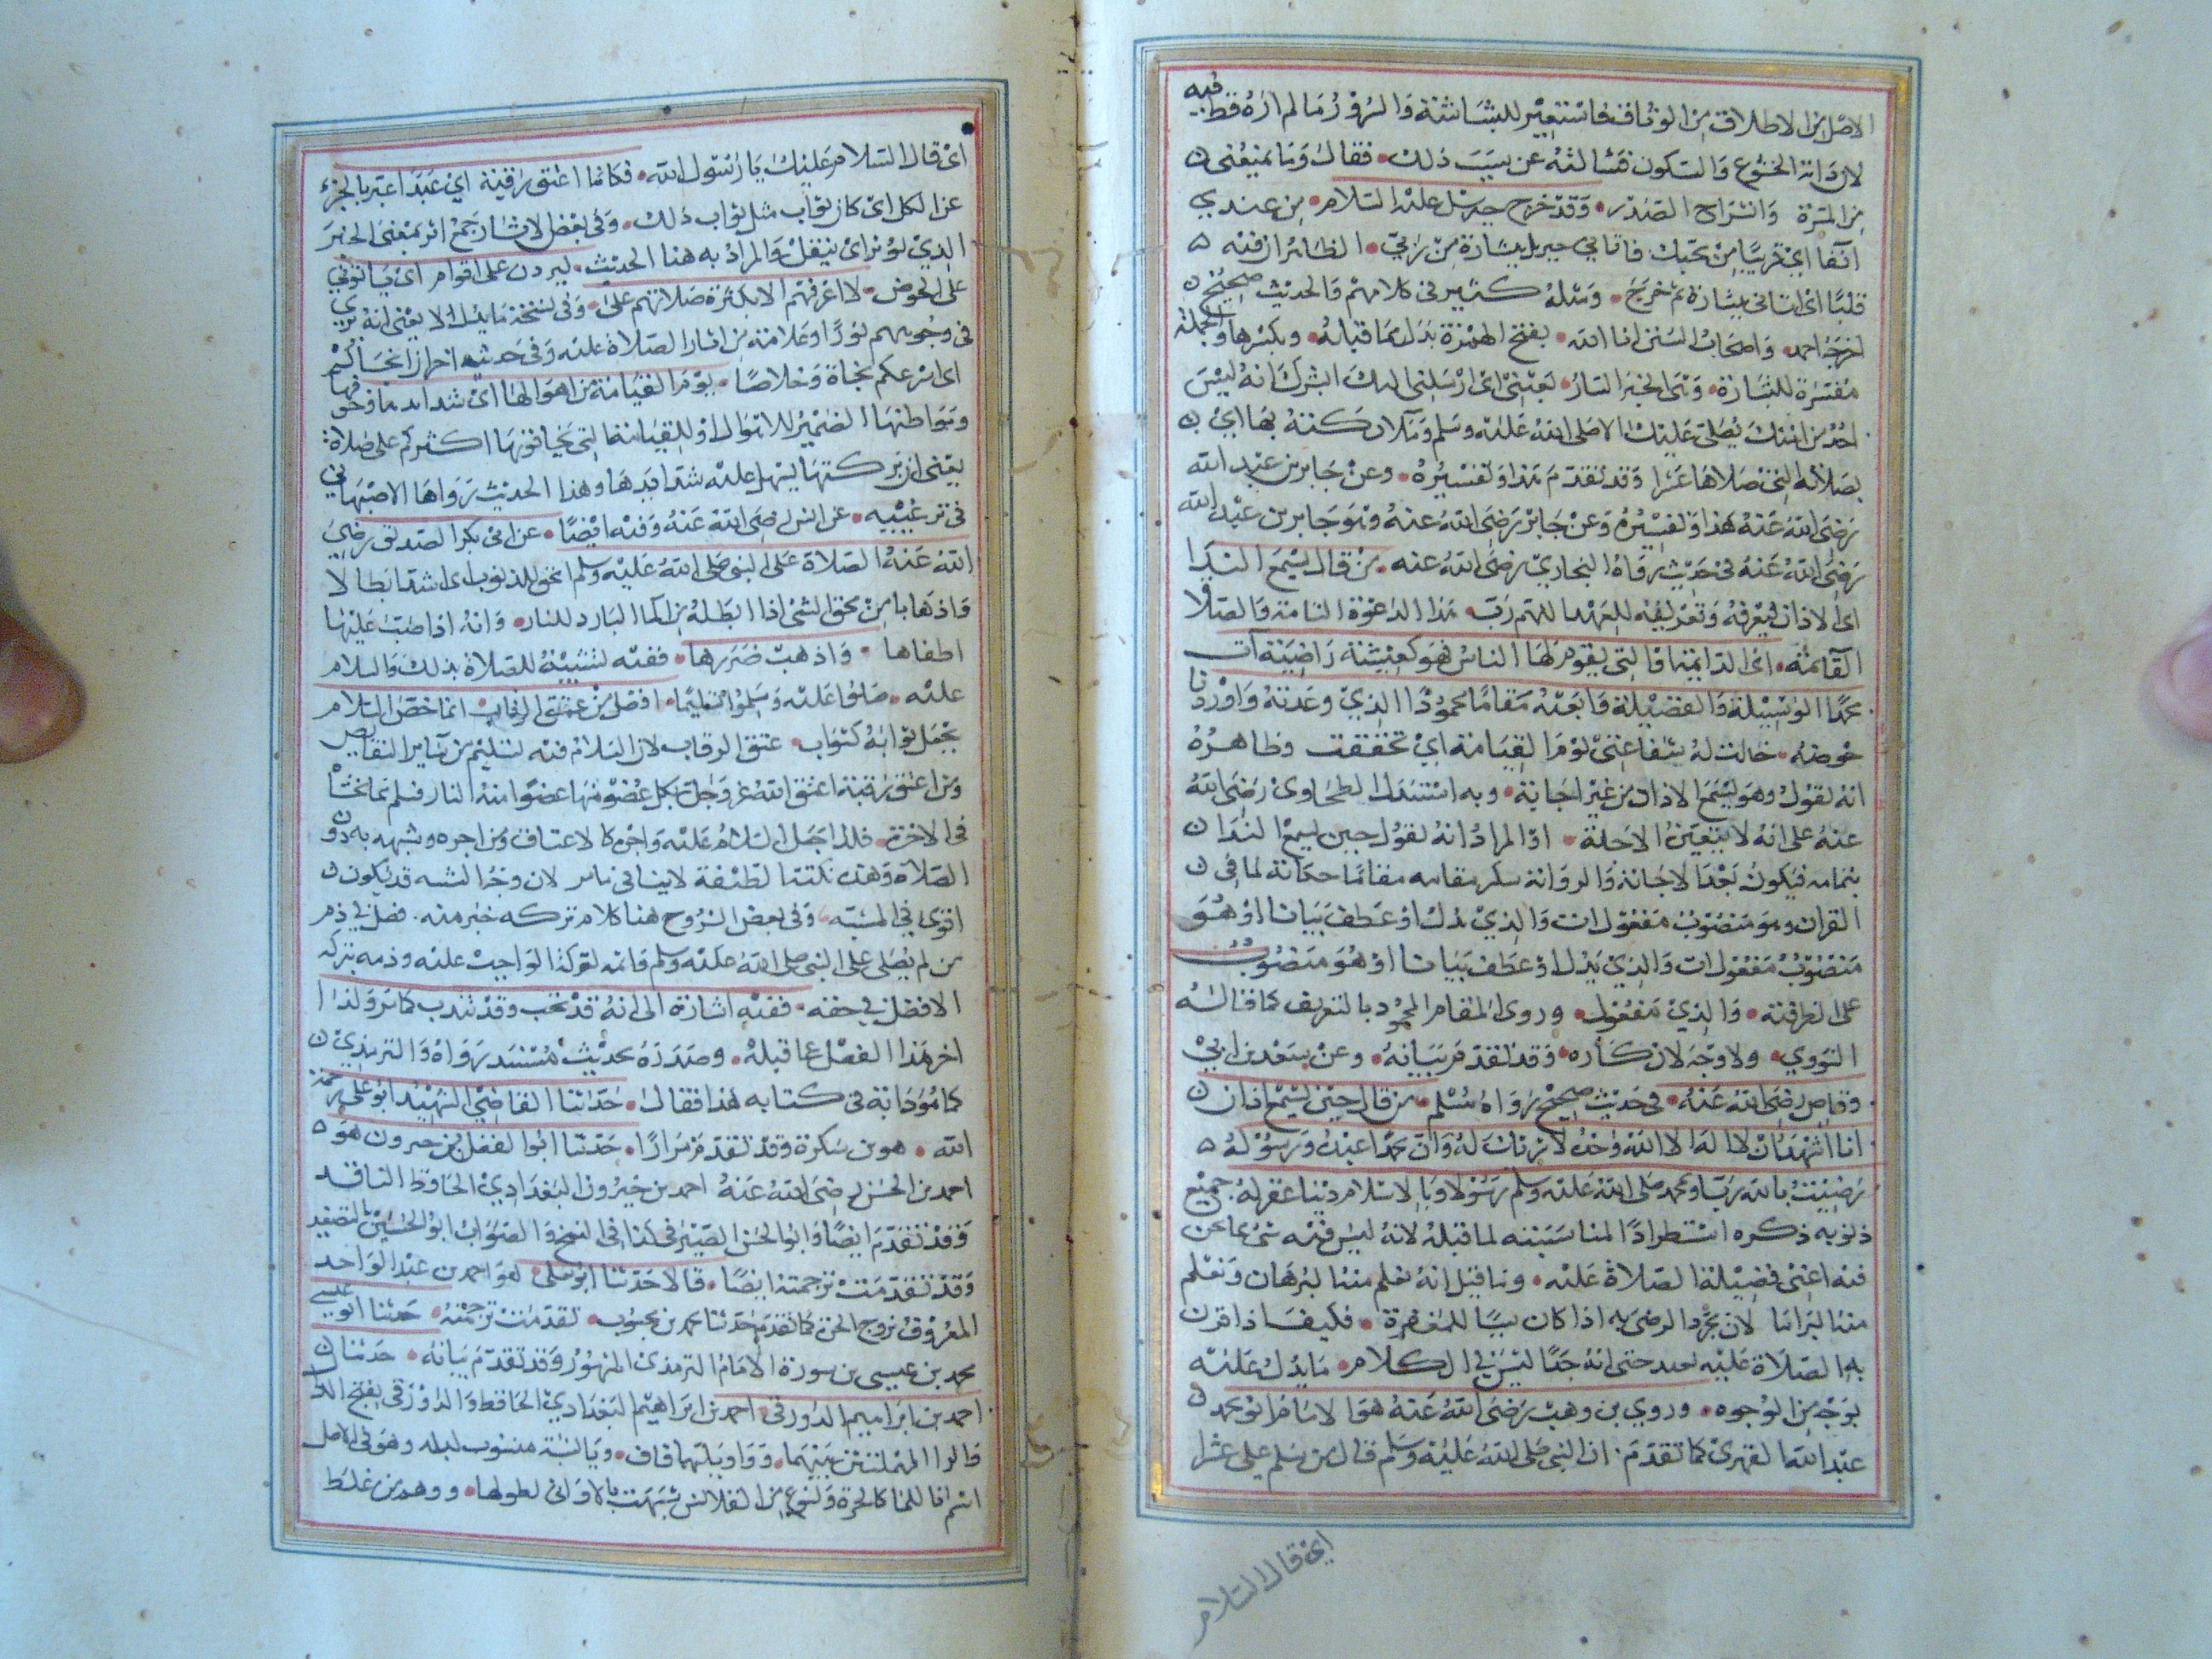 الاصل من الاطلاق من الوثاق فاستعير للبشاشة والسرور ما لم اره قط فيه
لان دابه الخشوع والسكون فسالته عن سبب ذلك فقال وما يمنعني
من المسرة وانشراح الصدر وقد خرج جبريل عليه السلام من عندي
آنفا اي قريبا من محبك فاتاني جبريل ببشارة من ربي الظاهر ان فيه
قلبا اي اتاني ببشارة ثم خرج ومثله كثير في كلامهم والحديث صحيح
اخرجه احمد واصحاب السنن ان الله بفتح الهمزة بدل مما قبله وبكسرها والجملة
مفسرة للبشارة وهي الخبر السار بعثني اي ارسلني اليك ابشرك انه ليس
احد من امتك يصلي عليك الا صلى الله عليه وسلم وملائكته بها اي
بصلاته التي صلاها عشرا وقد تقدم هذا وتفسيره وعن جابر بن عبد الله
رضي الله عنه هذا وتفسيره وعن جابر رضي الله عنه وهو جابر بن عبد الله
رضي الله عنه في حديث رواه البخاري رضي الله عنه من قال يسمع الندا
اي الاذان ليعرفه وتعريفه للعهد اللهم رب هذا الدعوة التامة والصلاة
القائمة اي الدائمة التي يقوم لها الناس فهو كعيشة راضية آت
محمدا الوسيلة والفضيلة وابعثه مقاما محمودا الذي وعدته واوردنا
حوضه حالت له شفاعتي يوم القيامة اي تحققت وظاهره
انه يقول وهو يسمع الاذان من غير اجابة وبه استدل الطحاوي رضي الله
عنه على انه لا يتعين الاجابة او المراد انه يقول حين يسمع الندا
بتمامه فيكون بعد الاجابة والرواية مقاما حكاية لما في
القران وهو منصوب مفعول ات والذي بدل او عطف بيان او هو
منصوب مفعول ات والذي بدل او عطف بيان او هو منصوب
على الظرفية والذي مفعول وروي المقام المحمود بالتعريف كما قاله
النووي ولا وجه لانكاره وقد تقدم بيانه وعن سعد بن ابي
وقاص رضي الله عنه في حديث صحيح رواه مسلم من قال حين يسمع اذان
انا اشهد ان لا اله الا الله وحده لا شريك له وان محمدا عبده ورسوله
رضيت بالله ربا وبمحمد صلى الله عليه وسلم رسولا وبالاسلام دينا غفر له جميع
ذنوبه ذكره استطرادا لمناسبته لما قبله لانه ليس فيه شي مما نحن
فيه اعني فضيلة الصلاة عليه وما قيل انه يعلم منه البرهان ويعلم
منه لان مجرد الرضى به اذا كان سببا للمغفرة فكيف اذا قرن
به الصلاة عليه بعيد حتى انه جدا ليس في الكلام ما يدل عليه
بوجه من الوجوه وروي بن وهب رضي الله عنه هو الامام ابو محمد
عبد الله الفهري كما تقدم ان النبي صلى الله عليه وسلم قال من سلم علي عشرا
اي قال السلام
اي قال السلام عليك يا رسول الله فكانما اعتق رقبة اي عبدا عبر بالجزء
عن الكل اي كان ثواب مثل ثواب ذلك وفي بعض الاثار جمع اثر بمعنى الخبر
الذي يوثر اي ينقل والمراد به هنا الحديث ليردن على اقوام اي ياتوني
على الحوض لا اعرفهم الا بكثرة صلاتهم علي وفي نسخة يعني انه يري
في وجوههم نورا وعلامة من اثار الصلاة عليه وفي حديث اخر ان انجاكم
اي اسرعكم نجاة وخلاصا يوم القيامة من اهوالها اي شدايد مافوق فيها
ومواطنها الضمير للاهوال او للقيامة التي يخافونها اكثركم علي صلاة
يعني ان بركتها ليسهل عليه شدايدها وهذا الحديث رواها الاصبهاني
في ترغيبه عن انس رضي الله عنه وفيه ايضا عن ابي بكر الصديق رضي
الله عنه الصلاة على النبي صلى الله عليه وسلم امحق للذنوب اي اشد ابطالا
واذهابا من محق الشي اذا ابطله من الما البارد للنار وانه اذا صب عليها
اطفاها واذهب ضررها ففيه تشبيه للصلاة بذلك والسلام
عليه صلوا عليه وسلموا تسليما افضل من عتق الرقاب انما خص السلام
بجعل ثوابه كثواب عتق الرقاب لان السلام فيه تسليم من ساير النقايص
ومن اعتق رقبة اعتق الله عز وجل بكل عضو منها عضوا منه النار فسلم مما يخشا
في الاخرة فلذا جعل السلام عليه واجره كالاعتاق ومن اجره وشبهه به دون
الصلاة وهذه نكتة لطيفة لاينافي لان وجه الشبه قد يكون
اقوى في المشبه وفي بعض الشروح هنا كلام تركه خير منه فصل في ذم
من لم يصلي على النبي صلى الله عليه وسلم واثمه لتركه الواجب عليه وذمه بتركه
الافضل في حقه ففيه اشارة الى انه قد تجب وقد تندب كما مر ولذا
اخر هذا الفصل عما قبله وصدره بحديث مسند رواه والترمذي
كما هو دابه في كتابه هذا فقال حدثنا القاضي الشهيد ابو علي رحمه
الله هو بن سكرة وقد تقدم مرارا حدثنا ابوا الفضل بن خيرون هو
احمد بن الحسن رضي الله عنه احمد بن خيرون البغدادي الحافظ الناقد
وقد تقدم ايضا وابوا الحسن الصيرفي كذا في النسخ والصواب ابو الحسين بالتصغير
وقد تقدمت ترجمته ايضا قالا حدثنا ابو يعلي هو احمد بن عبد الواحد
المعروف بزوج الحرة كما تقدم حدثنا محمد بن محبوب تقدمت ترجمته حدثنا ابو عيسى
محمد بن عيسى بن سورة الامام الترمذي المشهور وقد تقدم بيانه حدثنا
احمد بن ابراهيم الدورقي احمد بن ابراهيم البغدادي الحافظ والدورقي بفتح الدال
والرا المهملتين بينهما واو ويليهما قاف ويا لنسبة منسوب لبلد وهو في الاصل
اسم انا للما كالجرة ولنوع من القلانس شبهت بالاواني لطولها ووهم من غلط